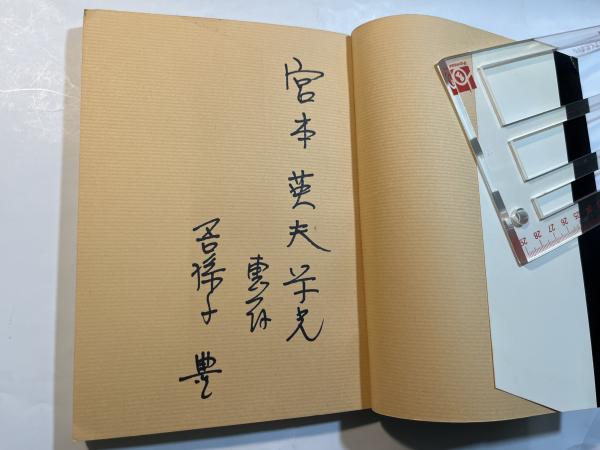 宮本英夫学兄
惠存
吾孫子 豊
25 26 27 28 29